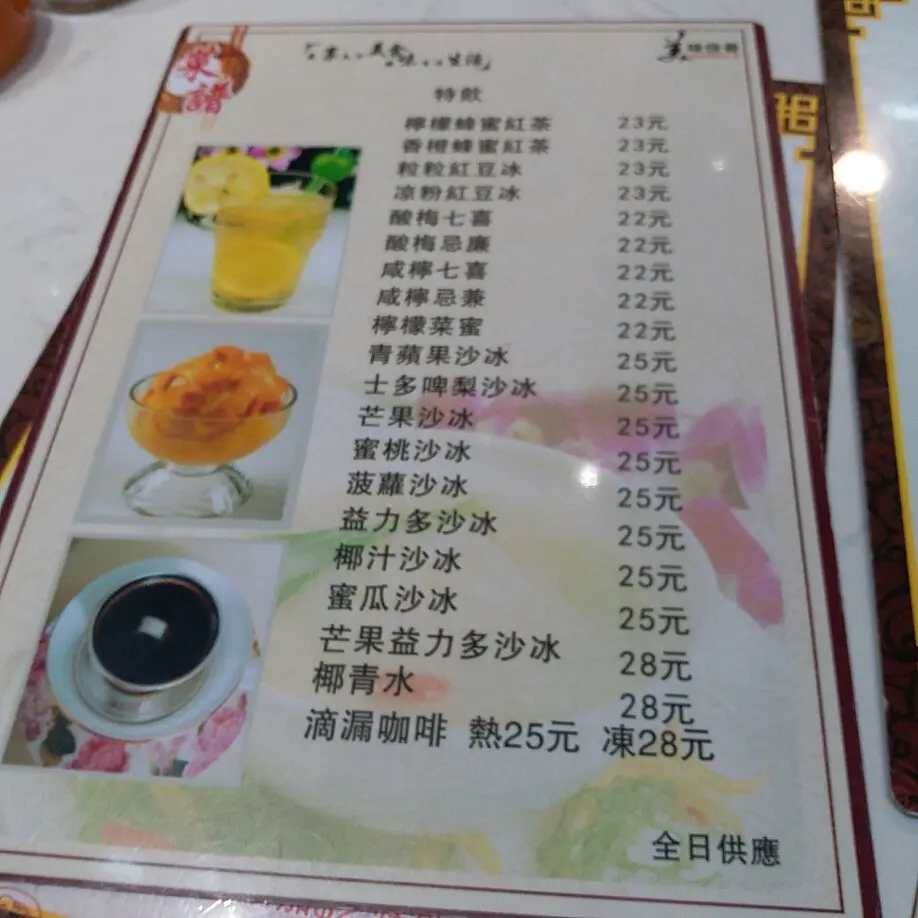 菓譜
特飲
檸檬蜂蜜紅茶 23元
香橙蜂蜜紅茶 23元
粒粒紅豆冰 23元
凉粉紅豆冰 23元
酸梅七喜 22元
酸梅忌廉 22元
咸檸七喜 22元
咸檸忌兼 22元
檸檬菜蜜 22元
青蘋果沙冰 25元
士多啤梨沙冰 25元
芒果沙冰 25元
蜜桃沙冰 25元
菠蘿沙冰 25元
益力多沙冰 25元
椰汁沙冰 25元
蜜瓜沙冰 25元
芒果益力多沙冰 28元
椰青水 28元
滴漏咖啡 熱25元 凍28元
全日供應